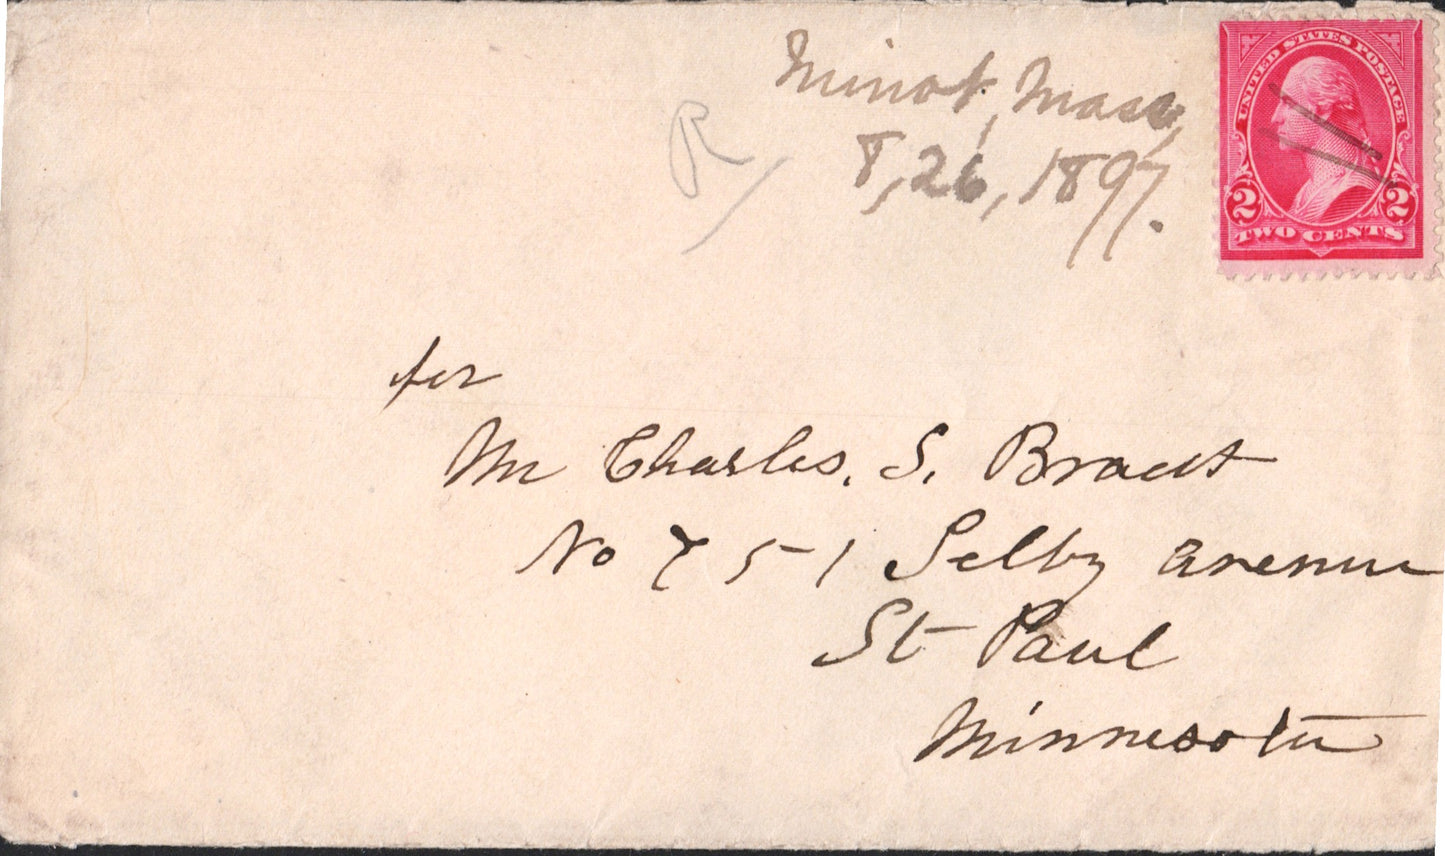 Minot, Mass,
8, 26, 1897.
R
UNITED STATES POSTAGE
2 2
TWO CENTS
for
Mr Charles. S. Bradt
No 751 Selby avenue
St Paul
Minnesota